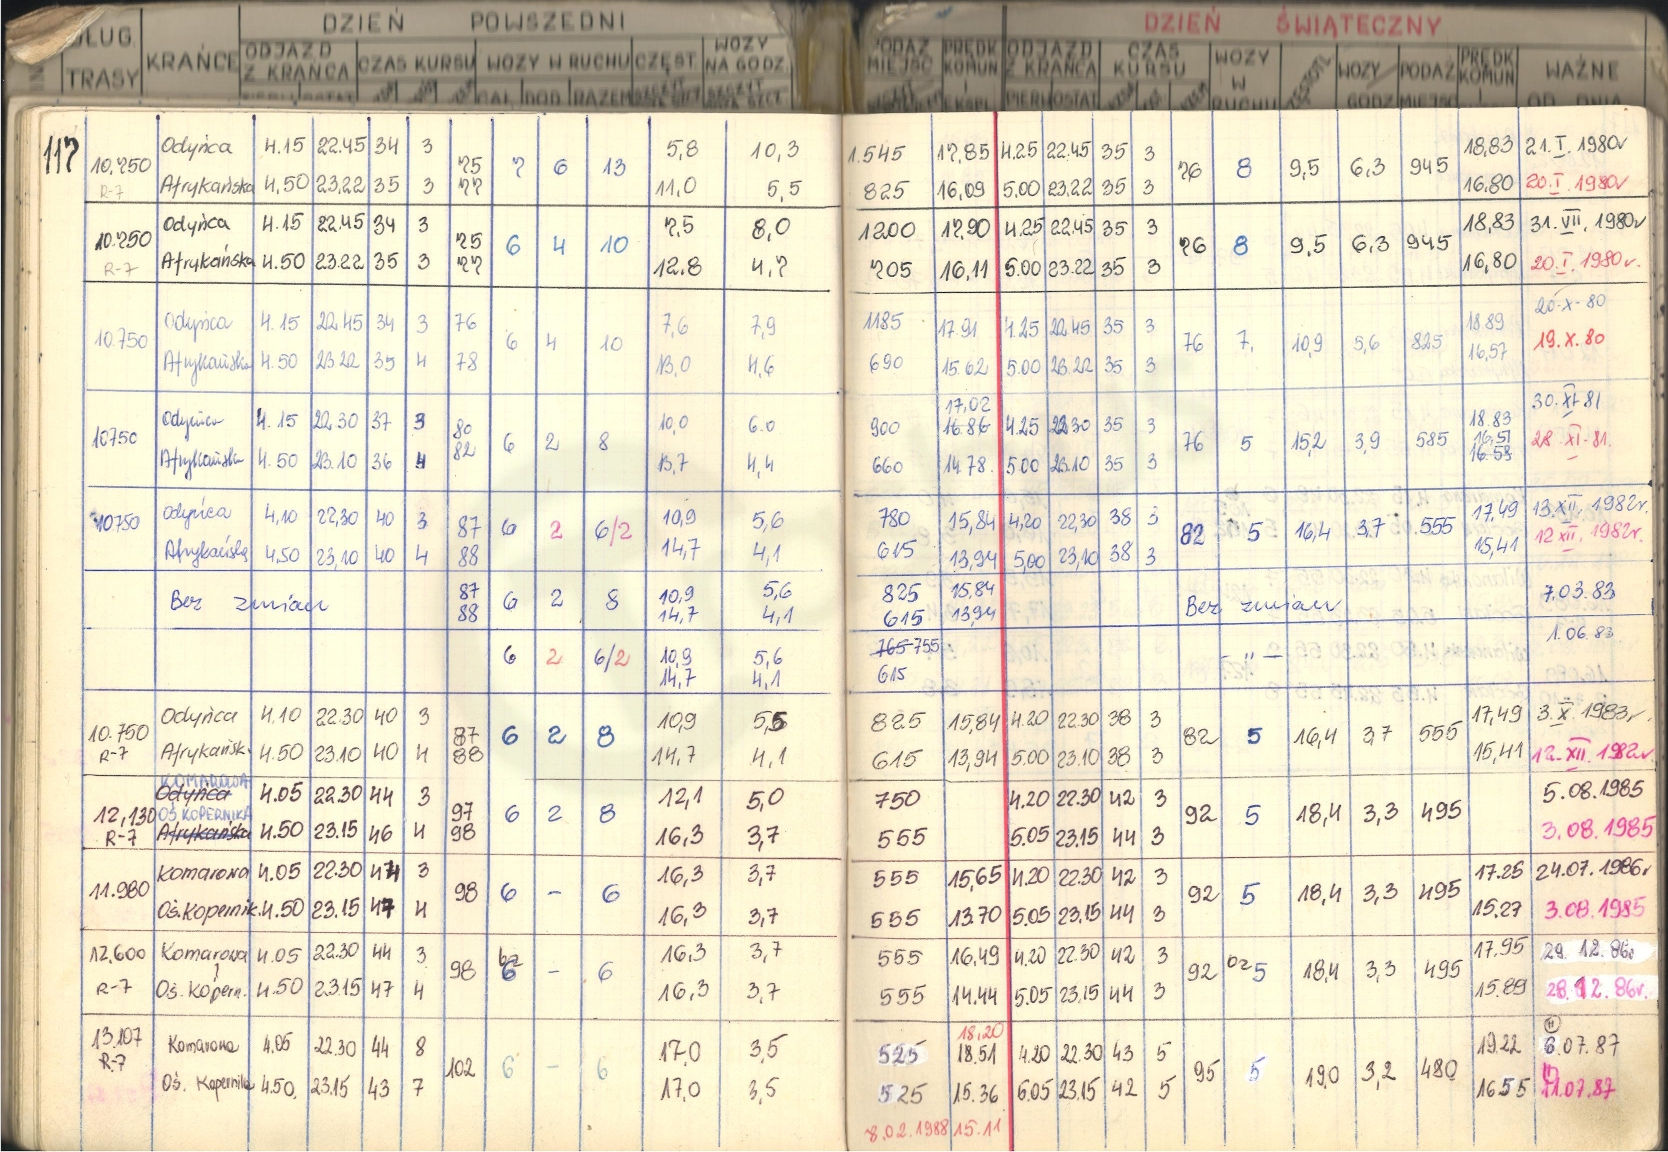 DZIEŃ POWSZEDNI DZIEŃ ŚWIĄTECZNY
DŁUG. TRASY KRAŃCE ODJAZD Z KRAŃCA CZAS KURSU WOZY W RUCHU CZĘST. WOZY NA GODZ. PODAŻ MIEJSC PRĘDK. KOMUN. ODJAZD Z KRAŃCA CZAS KURSU WOZY W RUCHU WOZY GODZ PODAŻ MIEJSC PRĘDK KOMUN WAŻNE OD DNIA
117
Odyńca 4.15 22.45 34 3 75 5,8 10,3 1.545 17,85 4.25 22.45 35 3 18,83 21.I.1980r
10,750 7 6 13 76 8 9,5 6,3 945
R-7 Afrykańska 4,50 23,22 35 3 77 11,0 5,5 825 16,09 5.00 23.22 35 3 16.80 20.I.1980r
Odyńca 4.15 22.45 34 3 75 7,5 8,0 1200 17,90 4.25 22.45 35 3 18,83 31.VII.1980r
10.750 6 4 10 76 8 9,5 6,3 945
R-7 Afrykańska 4.50 23.22 35 3 77 12,8 4,7 705 16,11 5.00 23.22 35 3 16,80 20.I.1980r.
Odyńca 4.15 22.45 34 3 76 7,6 7,9 1185 17.91 4.25 22.45 35 3 18.89 20-X-80
10.750 6 4 10 76 7, 10,9 5,6 825
Afrykańska 4.50 23.22 35 4 78 13,0 4,6 690 15.62 5.00 23.22 35 3 16,57 19.X.80
17,02
Odyńca 4.15 22.30 37 3 80 10,0 6.0 900 16.86 4.25 22.30 35 3 18.83 30.XI-81
10750 6 2 8 76 5 15,2 3,9 585 16.51
Afrykańska 4.50 23.10 36 4 82 13,7 4,4 660 14.78 5.00 23.10 35 3 16.53 28 XI-81.
Odyńca 4,10 22,30 40 3 87 10,9 5,6 780 15,84 4,20 22,30 38 3 17,49 13.XII.1982r
10750 6 2 6/2 82 5 16,4 3,7 555
Afrykańska 4,50 23,10 40 4 88 14,7 4,1 615 13,94 5,00 23,10 38 3 15,41 12 XII.1982r.
87 10,9 5,6 825 15,84 7.03.83
Bez zmian 6 2 8 Bez zmian
88 14,7 4,1 615 13,94
765-755 1.06.83
6 2 6/2 10,9 5,6 – " –
14,7 4,1 615
Odyńca 4.10 22.30 40 3 87 10,9 5,5 825 15,84 4.20 22.30 38 3 17,49 3.X.1983r.
10.750 6 2 8 82 5 16,4 3,7 555
R-7 Afrykańsk. 4.50 23.10 40 4 88 14,7 4,1 615 13,94 5.00 23.10 38 3 15,41 12.XII.1982r.
KOMAROWA
Odyńca 4.05 22.30 44 3 97 12,1 5,0 750 4.20 22.30 42 3 5.08.1985
12,130 OŚ KOPERNIKA 6 2 8 92 5 18,4 3,3 495
R-7 Afrykańska 4.50 23.15 46 4 98 16,3 3,7 555 5.05 23.15 44 3 3.08.1985
Komarowa 4.05 22.30 44 3 16,3 3,7 555 15,65 4.20 22.30 42 3 17.25 24.07.1986r
11.980 98 6 – 6 92 5 18,4 3,3 495
Oś.Kopernik. 4.50 23.15 47 4 16,3 3,7 555 13.70 5.05 23.15 44 3 15.27 3.08.1985
12,600 Komarowa 4.05 22.30 44 3 16.3 3,7 555 16.49 4.20 22.30 42 3 17.95 29.12.86r
98 bz 6 – 6 92 bz 5 18,4 3,3 495
R-7 Oś.Kopern. 4.50 23.15 47 4 16,3 3,7 555 14.44 5.05 23.15 44 3 15.89 28.12.86r.
18,20
13.107 Komarowa 4.05 22.30 44 8 17,0 3,5 525 18.51 4.20 22.30 43 5 19.22 6.07.87
R-7 102 6 – 6 95 5 19,0 3,2 480
Oś. Kopernika 4.50. 23.15 43 7 17,0 3,5 525 15.36 6.05 23.15 42 5 16.55 11.07.87
8.02.1988 15.11